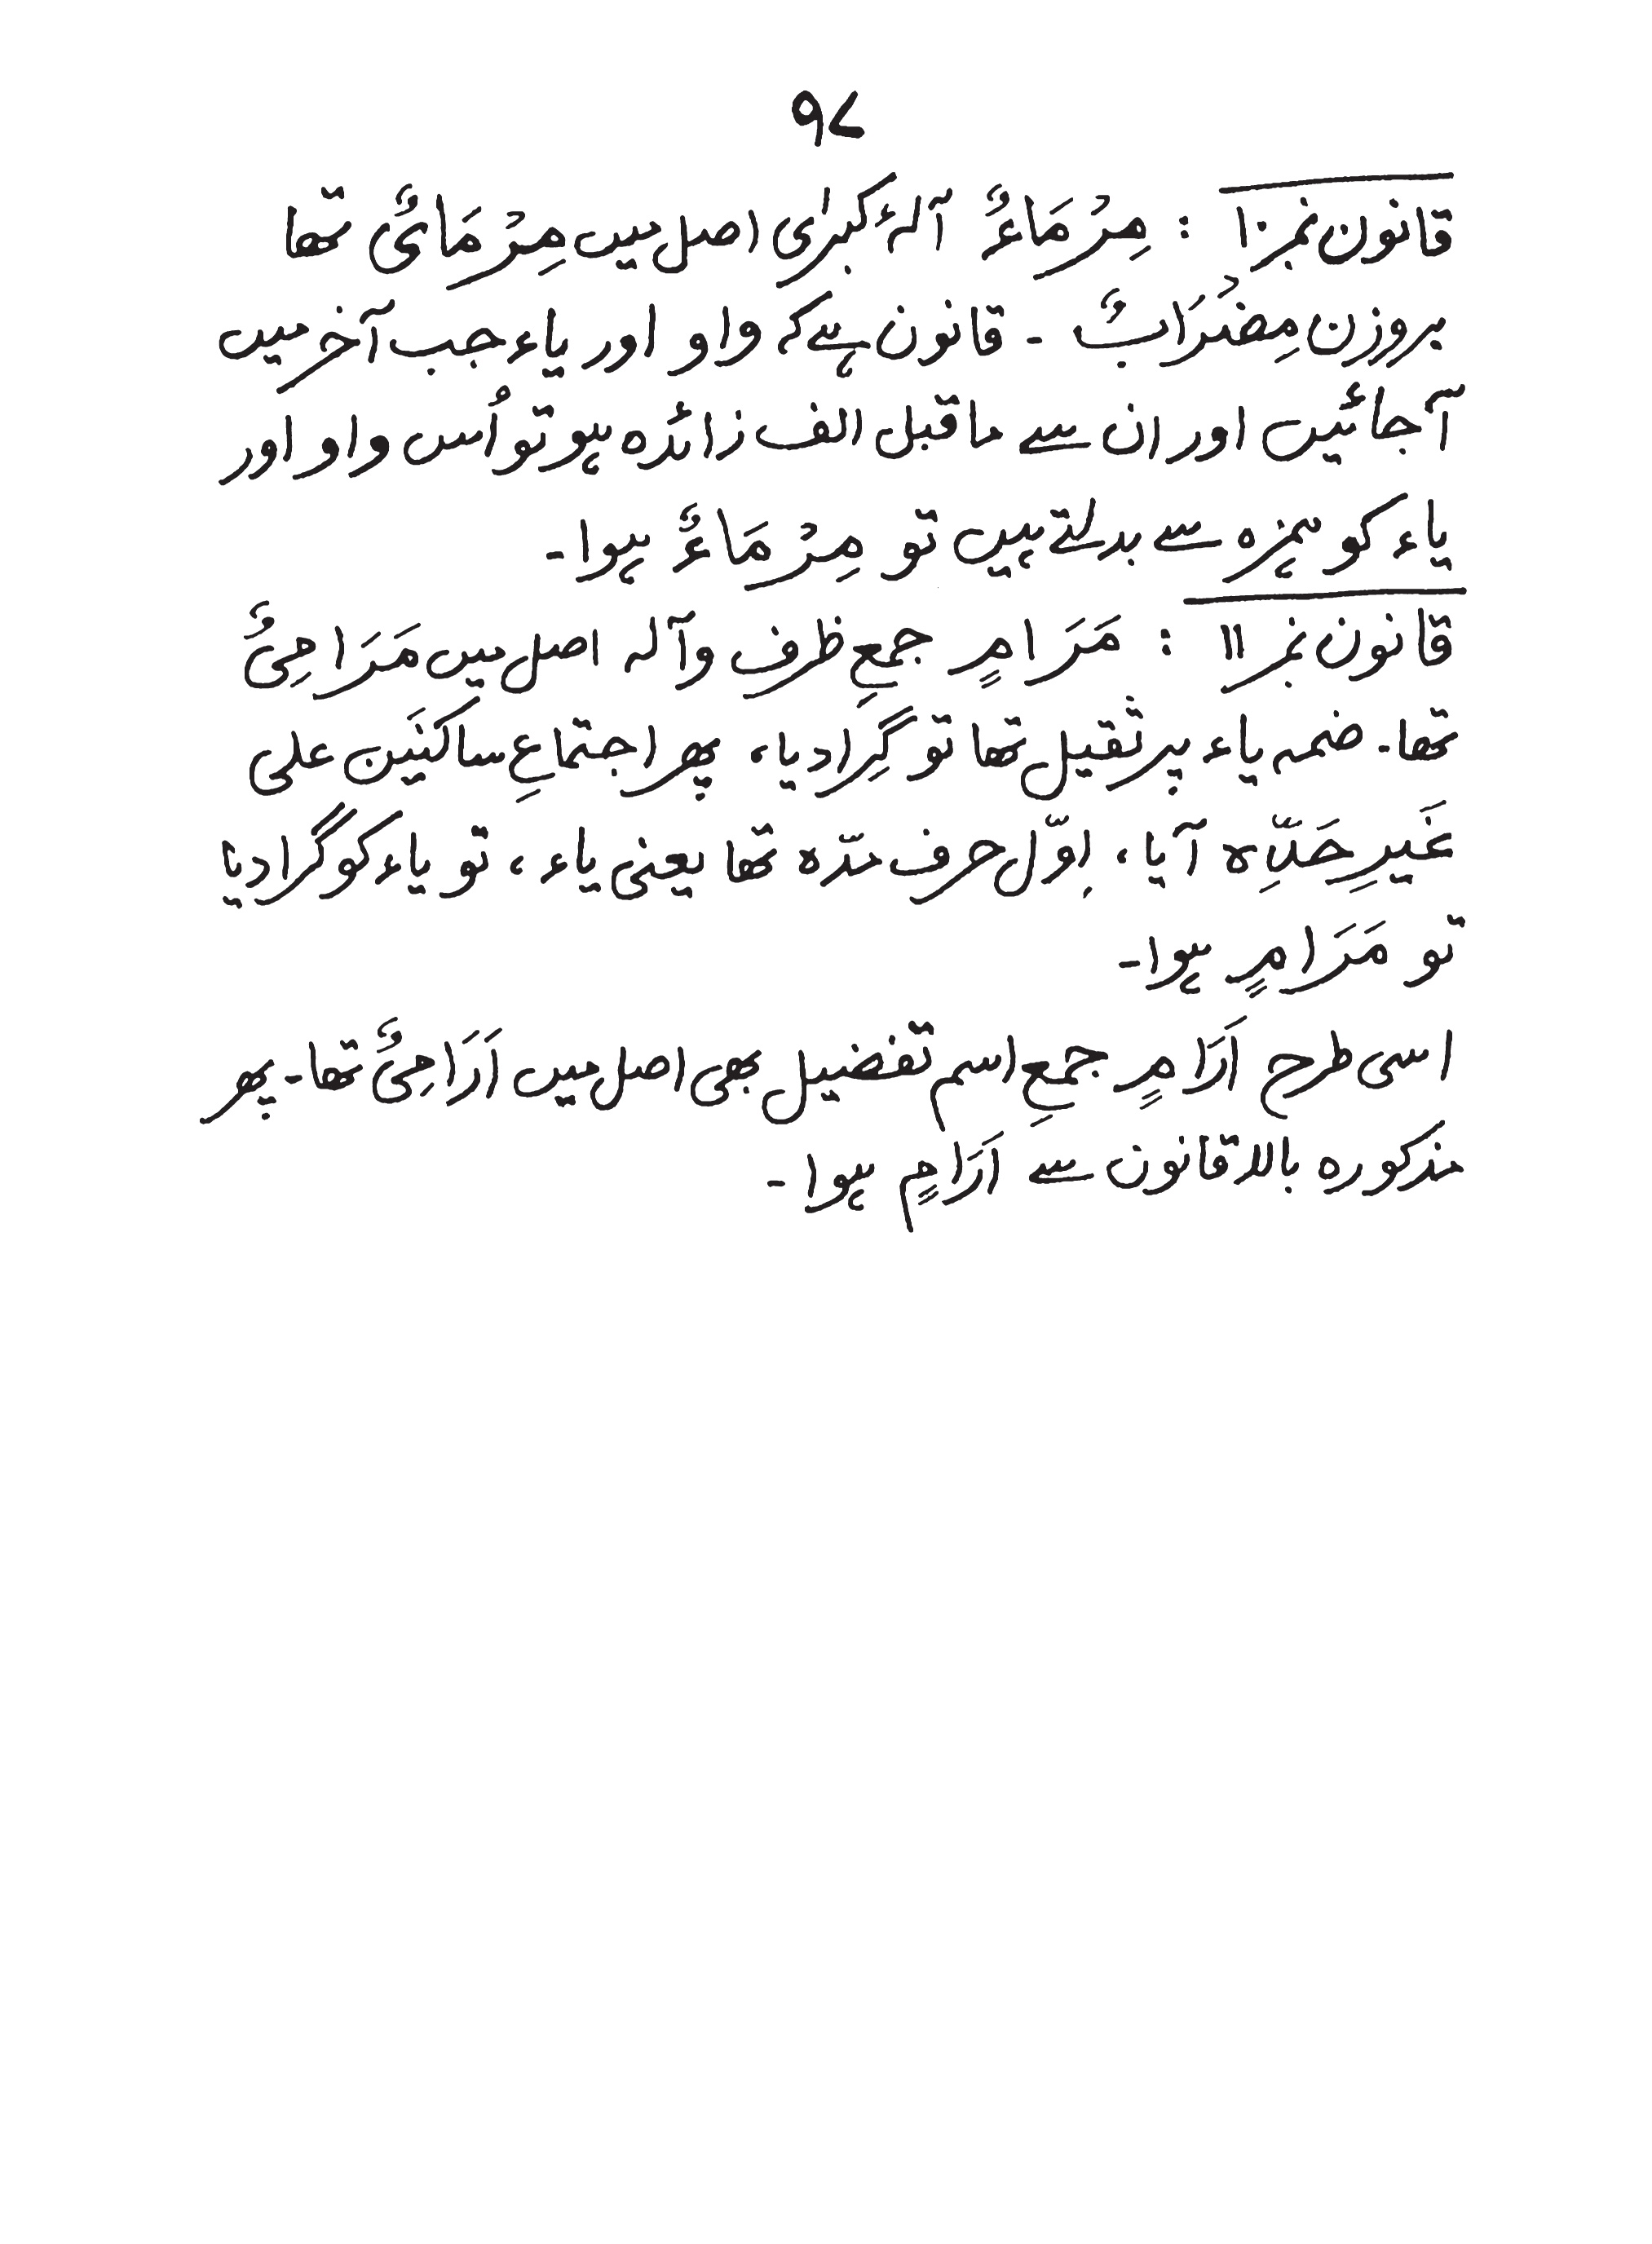 ۹۷
قانون نمبر۱۰ : مِرْمَاءٌ آلۂ کبرٰی اصل میں مِرْمَایٌ تھا
بروزن مِضْرَابٌ ۔ قانون ہے کہ واو اور یاء جب آخر میں
آجائیں اور ان سے ماقبل الف زائدہ ہو تو اُس واو اور
یاء کو ہمزہ سے بدلتے ہیں تو مِرْمَاءٌ ہوا۔
قانون نمبر ۱۱ : مَرَامٍ جمعِ ظرف وآلہ اصل میں مَرَامِیُ
تھا۔ ضمہ یاء پر ثقیل تھا تو گِرَادیا، پھر اجتماعِ ساکنَین علی
غَیرِ حَدِّہٖ آیا، اوّل حرف مدّہ تھا یعنی یاء، تو یاء کو گرادیا
تو مَرَامٍ ہوا۔
اسی طرح اَرَامٍ جمعِ اسم تفضیل بھی اصل میں اَرَامِیُ تھا۔ پھر
مذکورہ بالا قانون سے اَرَامٍ ہوا۔